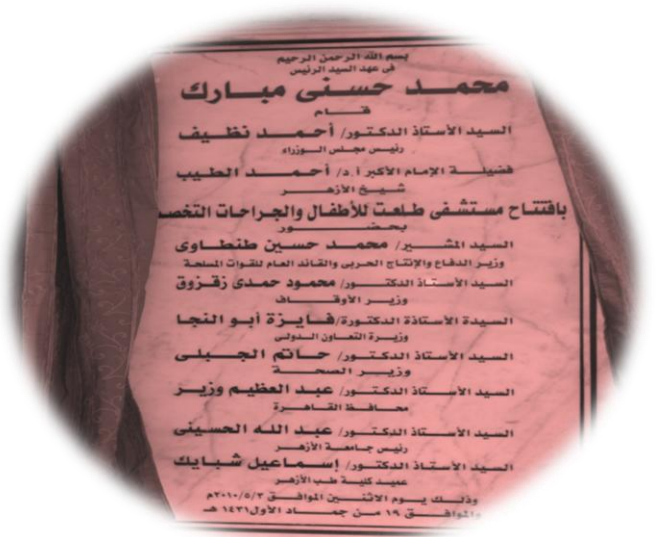 بسم الله الرحمن الرحيم
فى عهد السيد الرئيس
محمد حسنى مبارك
قام
السيد الأستاذ الدكتور/ أحمد نظيف
رئيس مجلس الوزراء
فضيلة الإمام الأكبر أ.د/ أحمد الطيب
شيخ الأزهر
بافتتاح مستشفى طلعت للأطفال والجراحات التخصص
بحضور
السيد المشير/ محمد حسين طنطاوى
وزير الدفاع والإنتاج الحربى والقائد العام للقوات المسلحة
السيد الأستاذ الدكتور/ محمود حمدى زقزوق
وزير الأوقاف
السيدة الأستاذة الدكتورة/ فايزة أبو النجا
وزيرة التعاون الدولى
السيد الأستاذ الدكتور/ حاتم الجبلى
وزير الصحة
السيد الأستاذ الدكتور/ عبد العظيم وزير
محافظ القاهرة
السيد الأستاذ الدكتور/ عبد الله الحسينى
رئيس جامعة الأزهر
السيد الأستاذ الدكتور/ إسماعيل شبايك
عميد كلية طب الأزهر
وذلك يوم الاثنين الموافق ٢٠١٠/٥/٣م
والموافق ١٩ من جماد الأول ١٤٣١ هـ